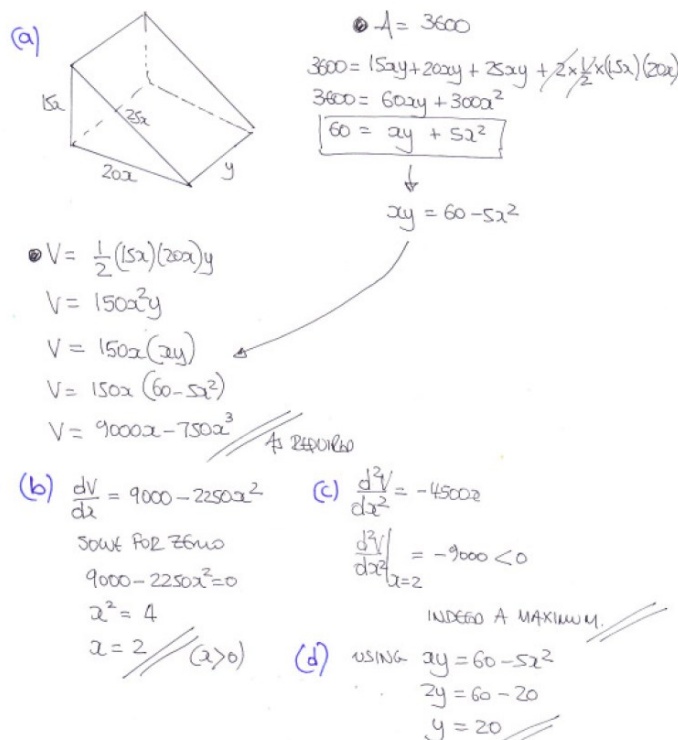 (a)
15x
25x
20x
y
A = 3600
3600 = 15xy + 20xy + 25xy + 2×1/2×(15x)(20x)
3600 = 60xy + 300x²
60 = xy + 5x²
xy = 60 - 5x²
V = 1/2(15x)(20x)y
V = 150x²y
V = 150x(xy)
V = 150x(60 - 5x²)
V = 9000x - 750x³
AS REQUIRED
(b) dV/dx = 9000 - 2250x²
SOLVE FOR ZERO
9000 - 2250x² = 0
x² = 4
x = 2 (x>0)
(c) d²V/dx² = -4500x
d²V/dx²|x=2 = -9000 < 0
INDEED A MAXIMUM.
(d) USING xy = 60 - 5x²
2y = 60 - 20
y = 20